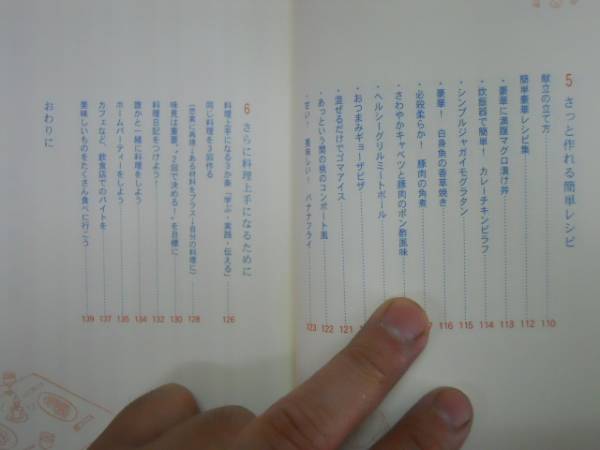 5 さっと作れる簡単レシピ
献立の立て方 110
簡単豪華レシピ集 112
・豪華に満腹マグロ漬け丼 113
・炊飯器で簡単! カレーチキンピラフ 114
・シンプルジャガイモグラタン 115
・豪華! 白身魚の香草焼き 116
・必殺柔らか! 豚肉の角煮
・さわやかキャベツと豚肉のポン酢風味
・ヘルシーグリルミートボール
・おつまみギョーザピザ
・混ぜるだけでゴマアイス 121
・あっという間の桃のコンポート風 122
・甘い! 美味しい! バナナフライ 123
6 さらに料理上手になるために
料理上手になる3か条「学ぶ・実践・伝える」 126
同じ料理を3回作る
(忠実に再現→ある材料をプラス→自分の料理に) 128
味見は重要。“2回で決める!”を目標に 130
料理日記をつけよう! 132
誰かと一緒に料理をしよう 134
ホームパーティーをしよう 135
カフェなど、飲食店でのバイトを 137
美味しいものをたくさん食べに行こう 139
おわりに